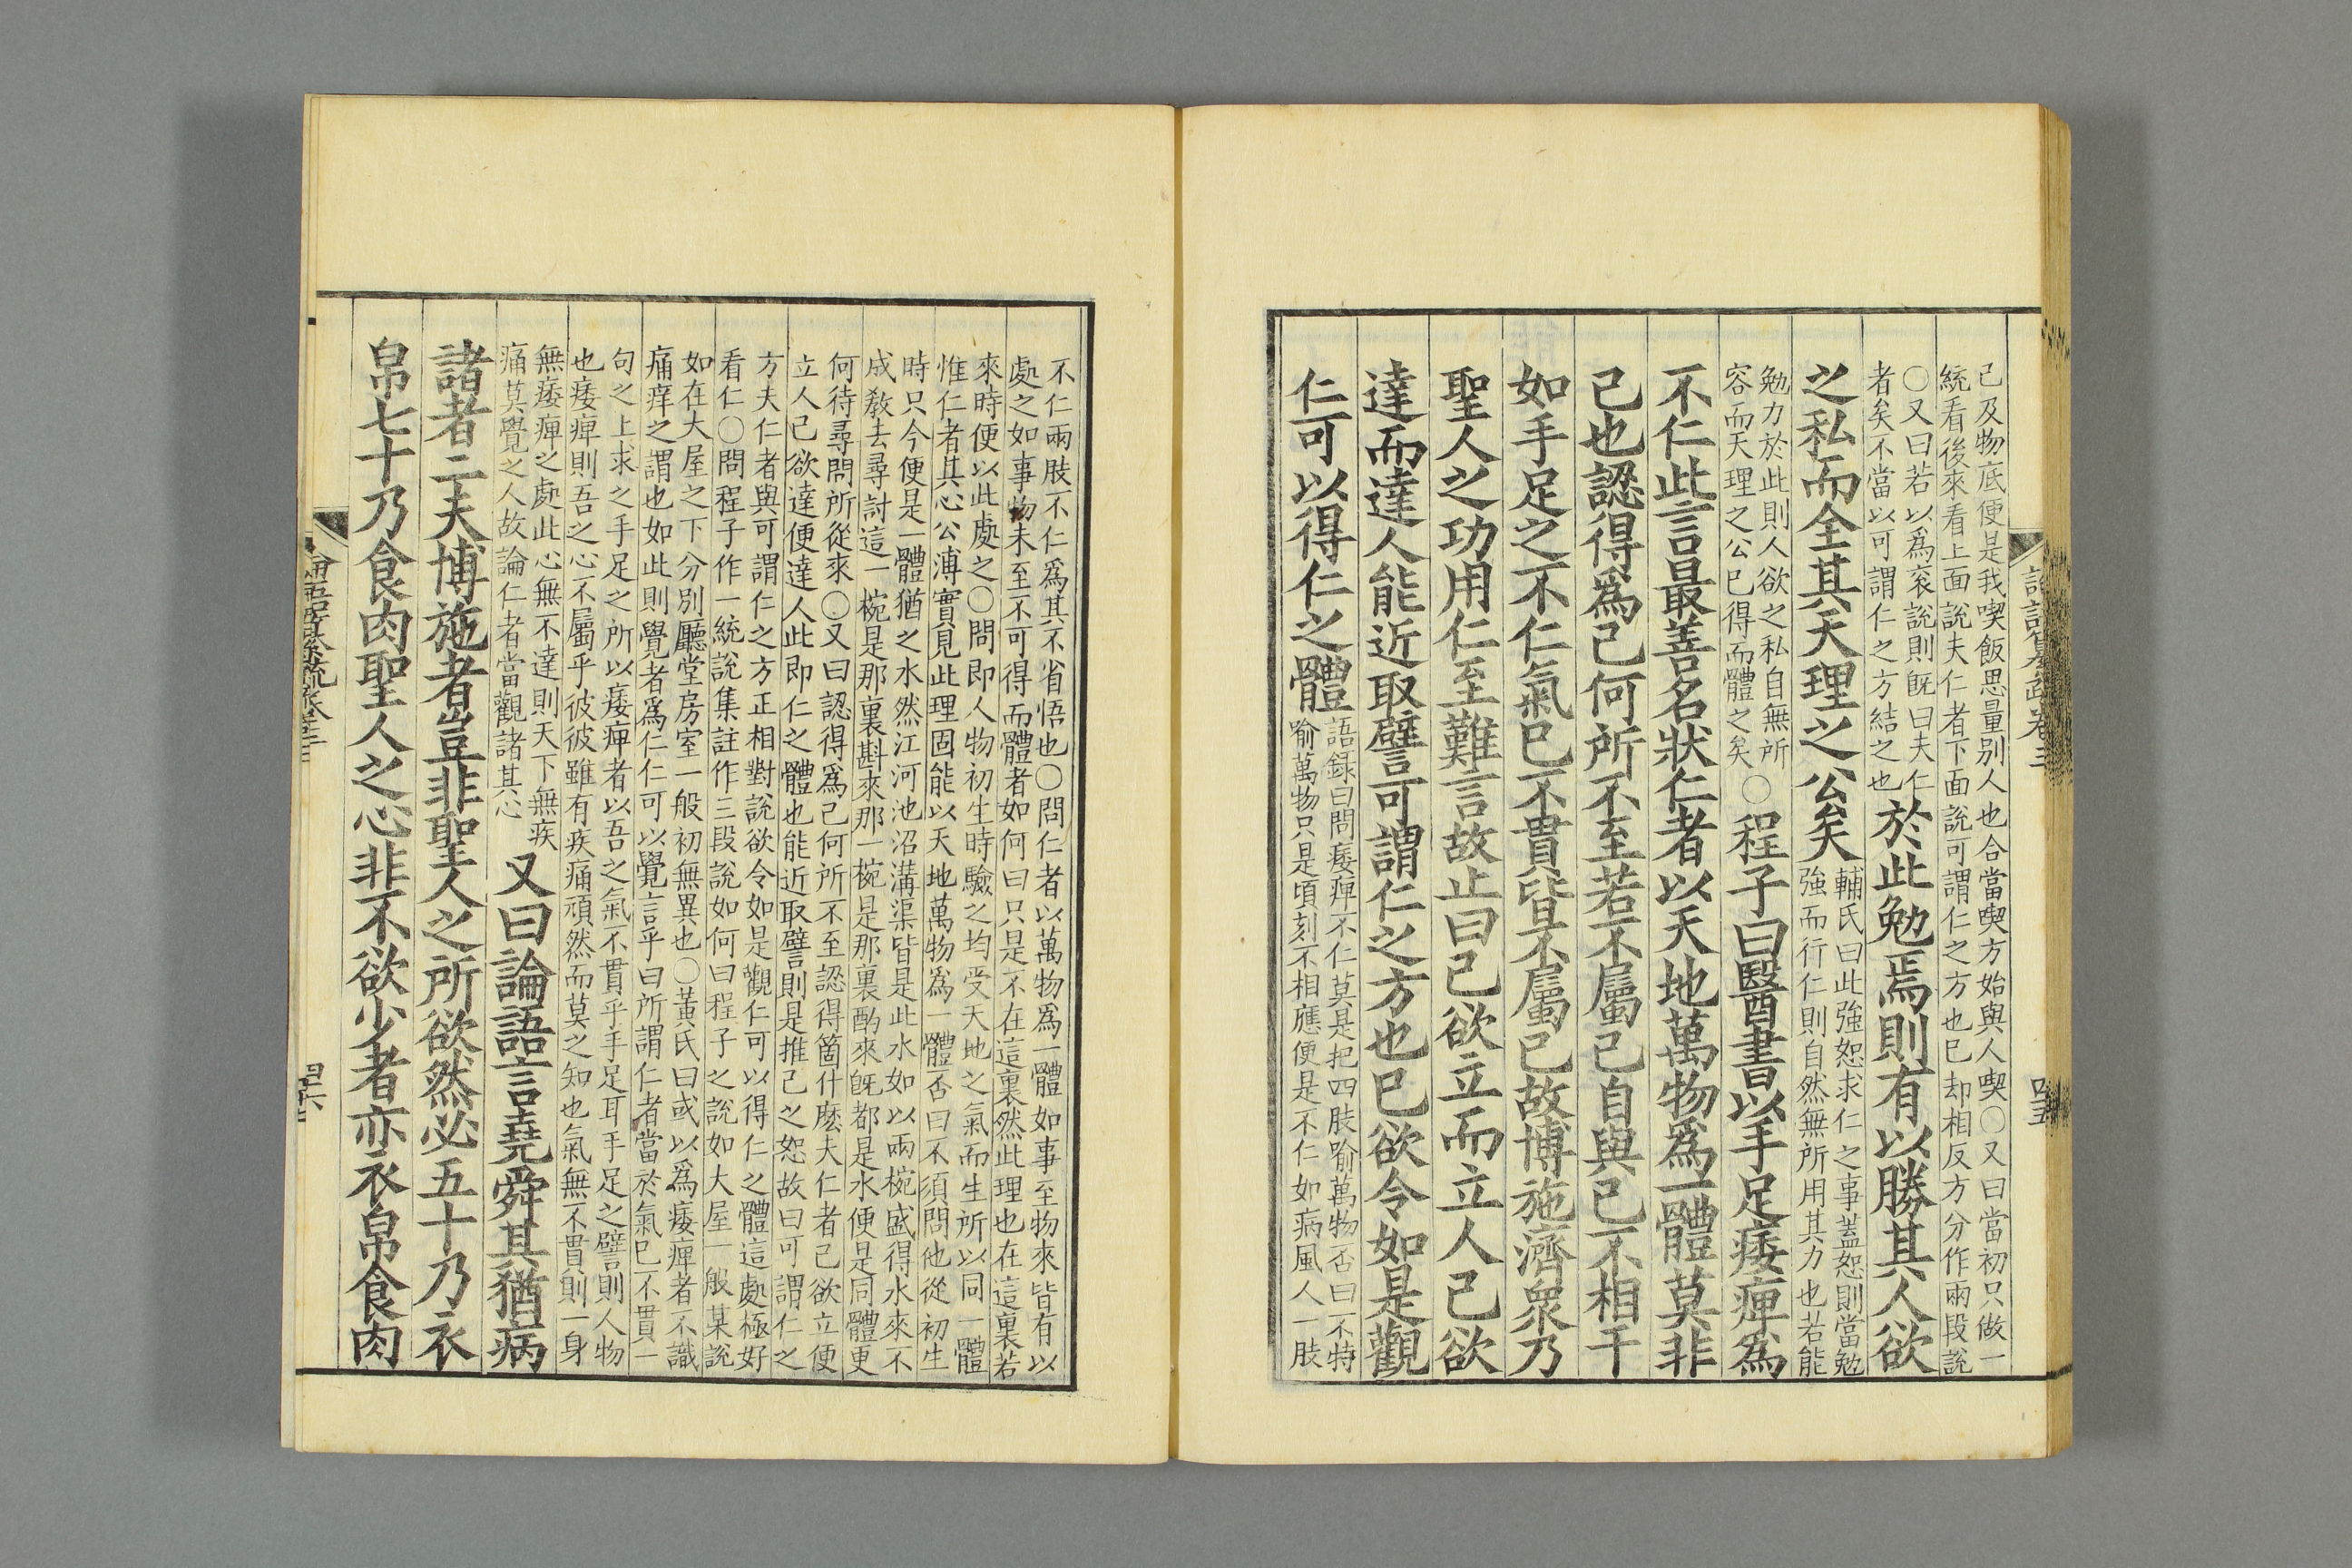 己及物底便是我喫飯思量别人也合當喫方始與人喫○又曰當初只做一
統看後來看上面說夫仁者下面說可謂仁之方也已却相反方分作兩段說
○又曰若以爲衮說則既曰夫仁
者矣不當以可謂仁之方結之也
於此勉焉則有以勝其人欲
之私而全其天理之公矣
輔氏曰此強恕求仁之事蓋恕則當勉
強而行仁則自然無所用其力也若能
勉力於此則人欲之私自無所
容而天理之公已得而體之矣
○程子曰醫書以手足痿痺爲
不仁此言最善名狀仁者以天地萬物爲一體莫非
己也認得爲己何所不至若不屬己自與己不相干
如手足之不仁氣已不貫皆不屬己故博施濟衆乃
聖人之功用仁至難言故止曰己欲立而立人己欲
達而達人能近取譬可謂仁之方也已欲令如是觀
仁可以得仁之體
語録曰問痿痺不仁莫是把四肢喻萬物否曰不特
喻萬物只是頃刻不相應便是不仁如病風人一肢
不仁兩肢不仁爲其不省悟也○問仁者以萬物爲一體如事至物來皆有以
處之如事物未至不可得而體者如何曰只是不在這裏然此理也在這裏若
來時便以此處之○問即人物初生時驗之均受天地之氣而生所以同一體
惟仁者其心公溥實見此理固能以天地萬物爲一體否曰不須問他從初生
時只今便是一體猶之水然江河池沼溝渠皆是此水如以兩椀盛得水來不
成教去尋討這一椀是那裏斟來那一椀是那裏酌來既都是水便是同體更
何待尋問所從來○又曰認得爲己何所不至認得箇什麽夫仁者己欲立便
立人己欲達便達人此即仁之體也能近取譬則是推己之恕故曰可謂仁之
方夫仁者與可謂仁之方正相對說欲令如是觀仁可以得仁之體這處極好
看仁○問程子作一統說集註作三段說如何曰程子之說如大屋一般某說
如在大屋之下分别廳堂房室一般初無異也○黃氏曰或以爲痿痺者不識
痛痒之謂也如此則覺者爲仁仁可以覺言乎曰所謂仁者當於氣已不貫一
句之上求之手足之所以痿痺者以吾之氣不貫乎手足耳手足之譬則人物
也痿痺則吾之心不屬乎彼彼雖有疾痛頑然而莫之知也氣無不貫則一身
無痿痺之處此心無不達則天下無疾
痛莫覺之人故論仁者當觀諸其心
又曰論語言堯舜其猶病
諸者二夫博施者豈非聖人之所欲然必五十乃衣
帛七十乃食肉聖人之心非不欲少者亦衣帛食肉